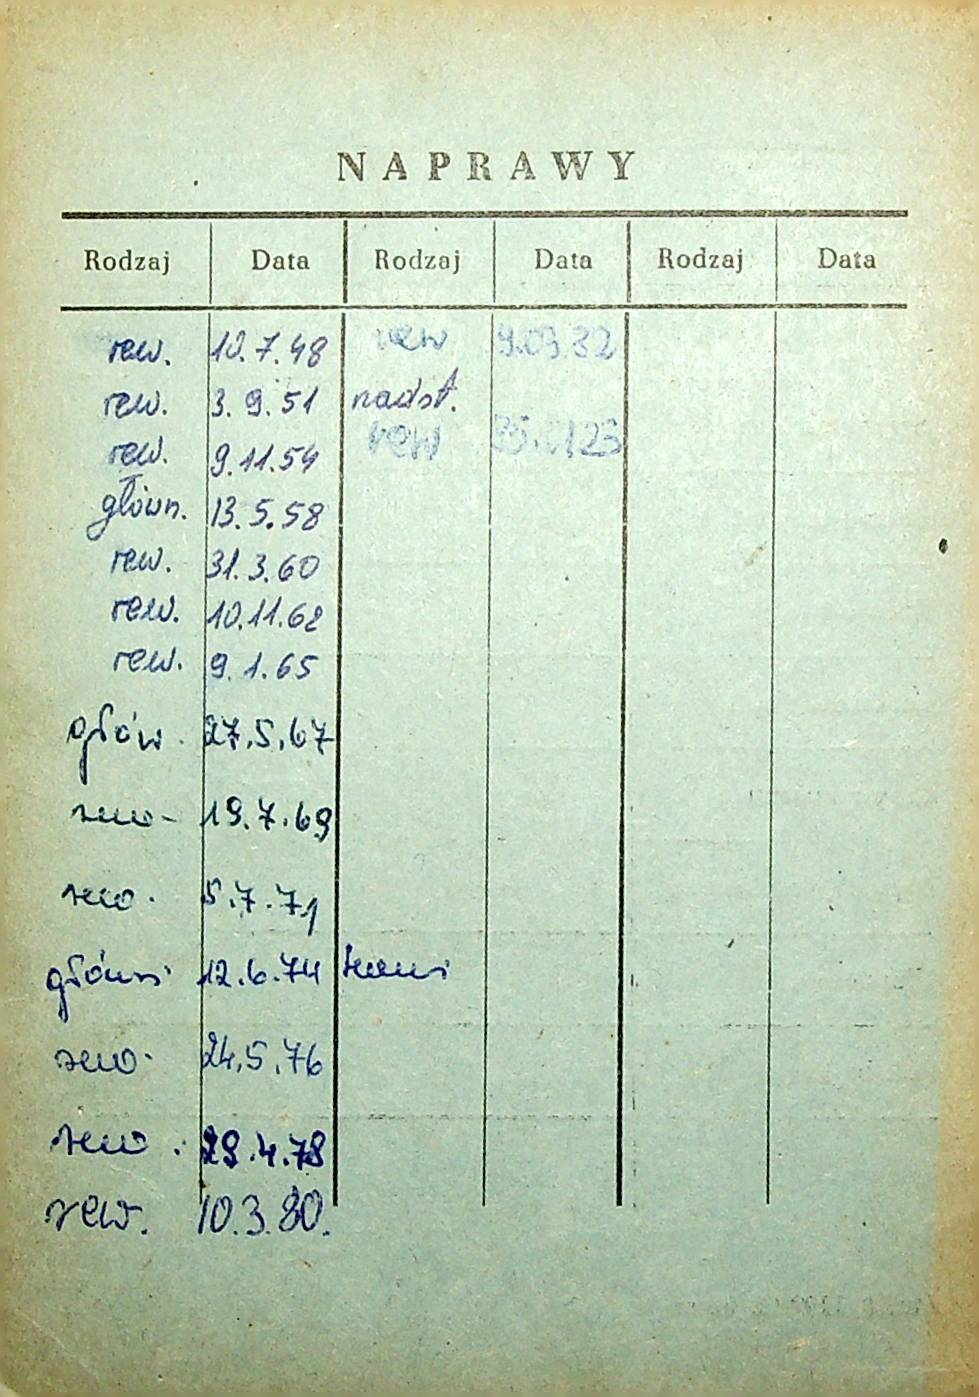 NAPRAWY
Rodzaj Data Rodzaj Data Rodzaj Data
rew. 10.7.48 rew 9.03.82
rew. 3.9.51 nadst.
rew. 9.11.54 rew
główn. 13.5.58
rew. 31.3.60
rew. 10.11.62
rew. 9.1.65
głów. 27.5.67
rew- 19.7.69
rew. 5.7.71
główni 12.6.74
rew. 24.5.76
rew. 29.4.78
rew. 10.3.80.